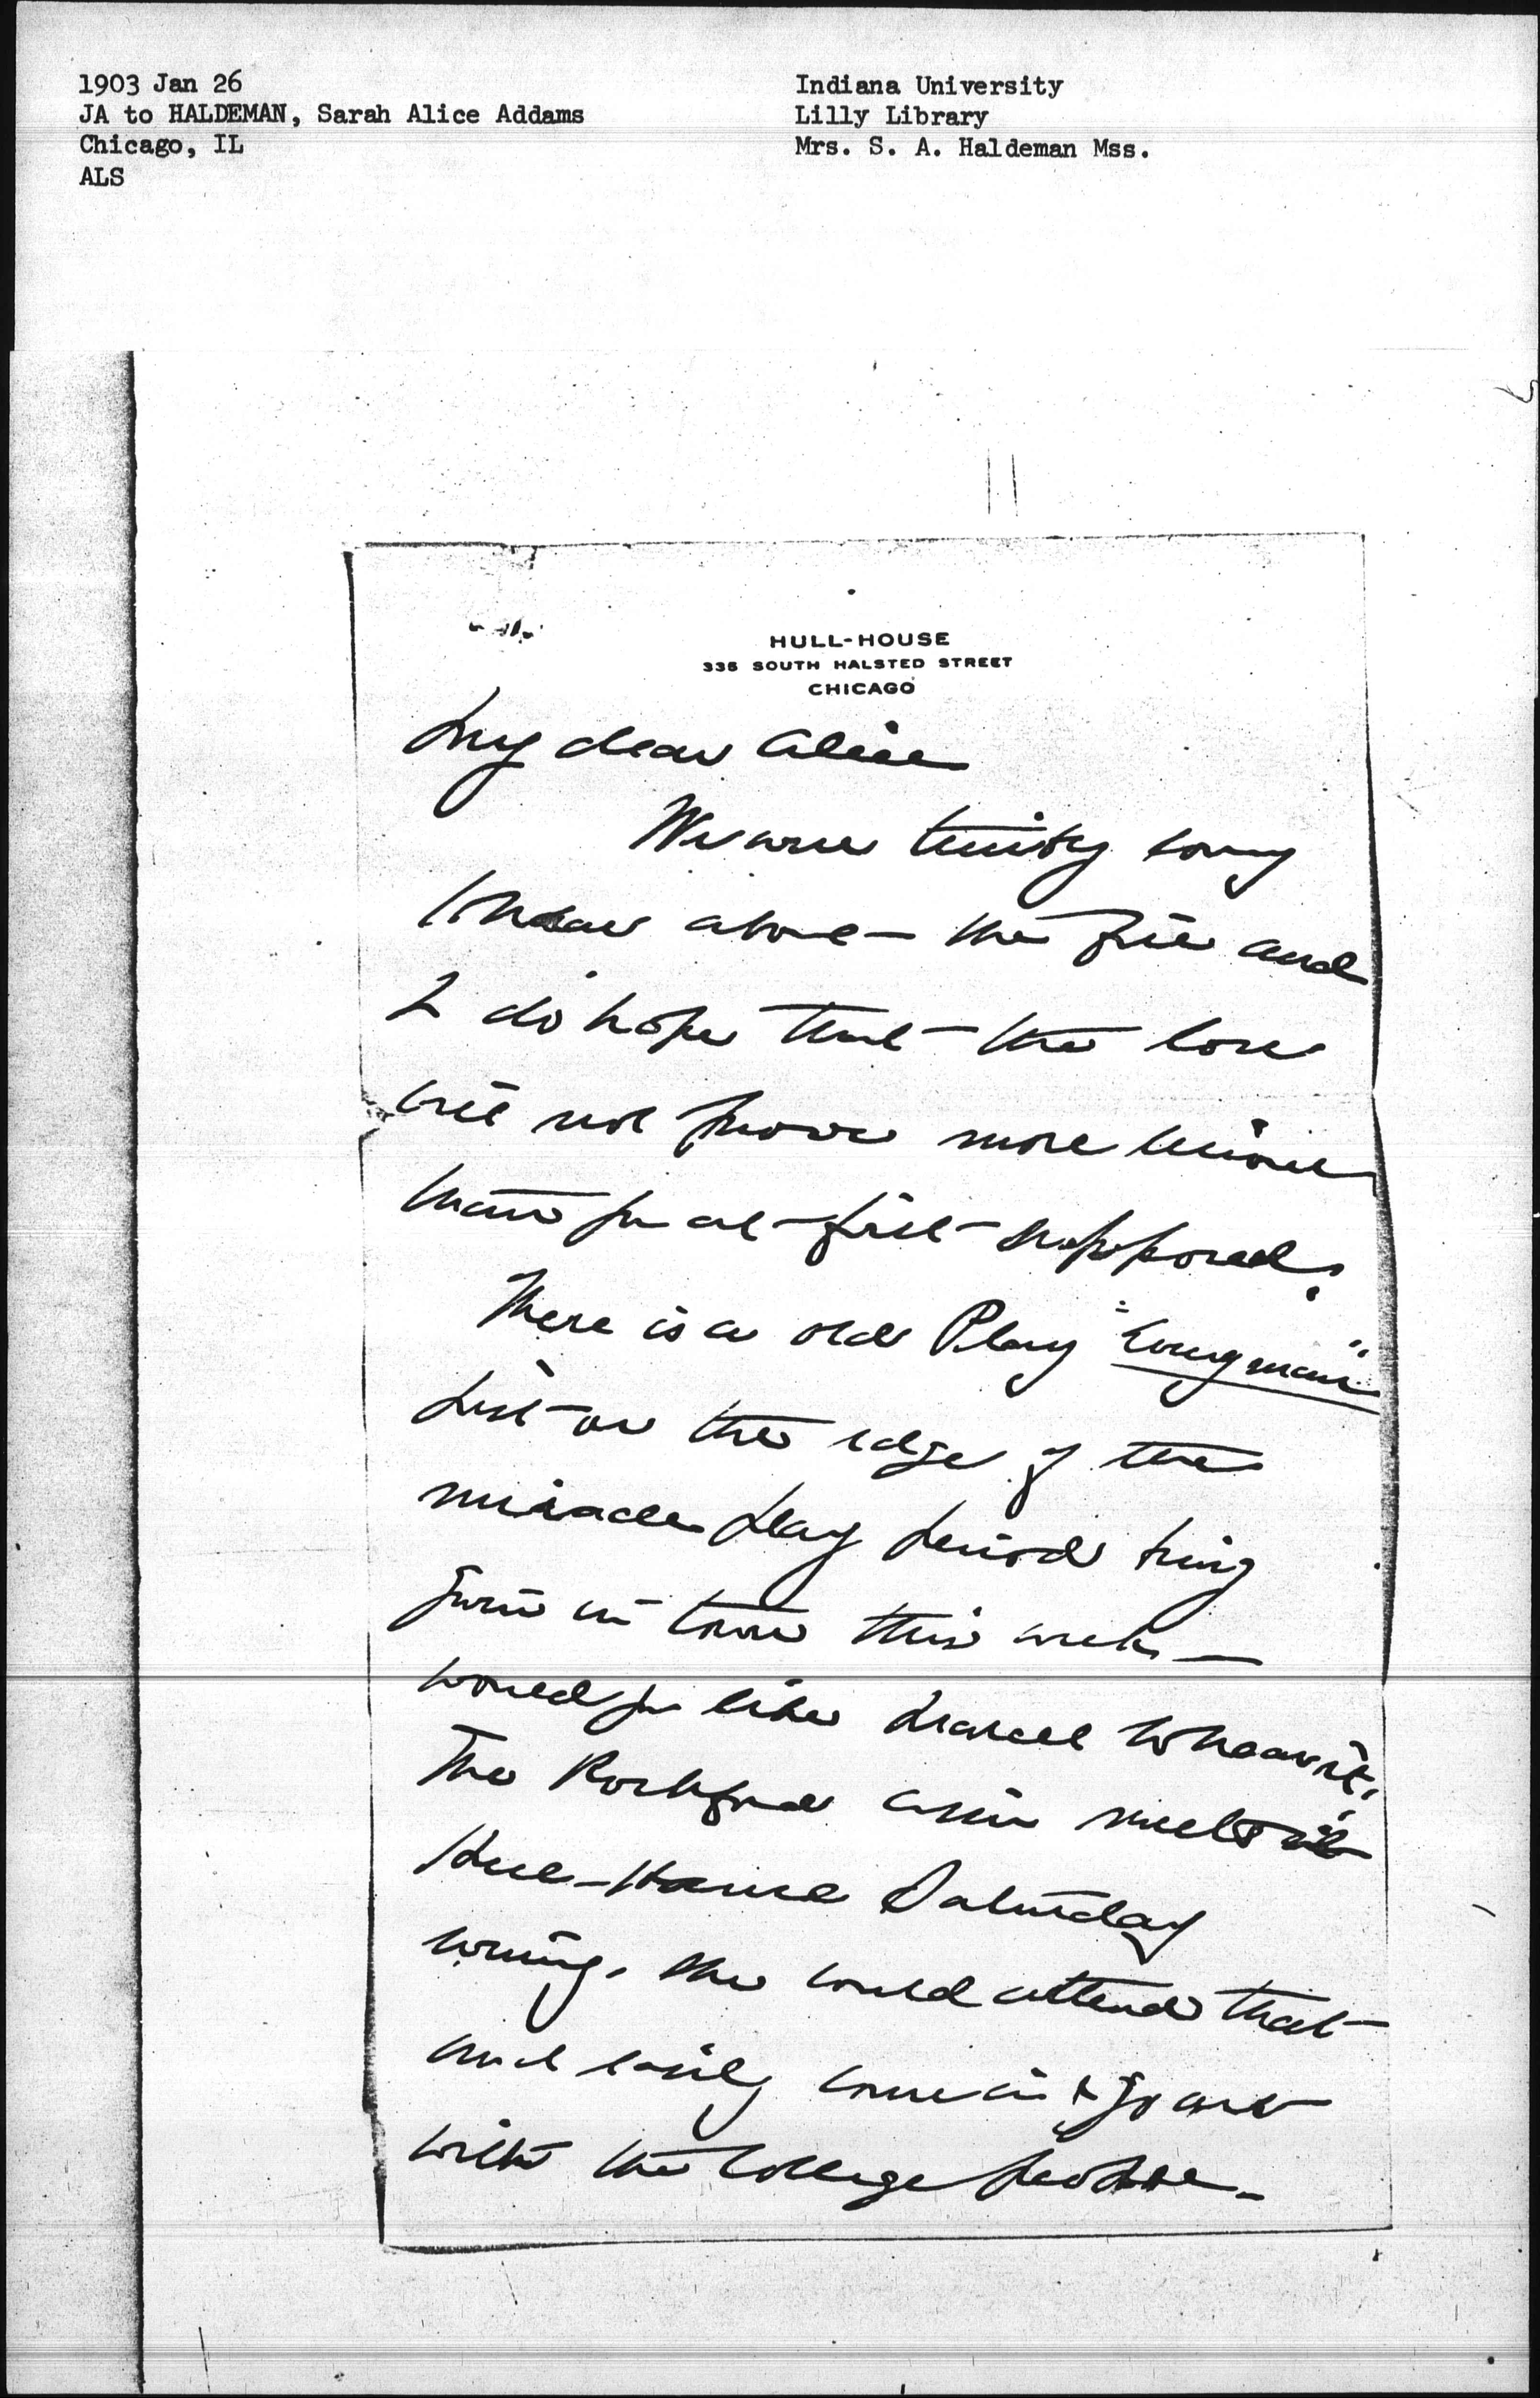 1903 Jan 26
JA to HALDEMAN, Sarah Alice Addams
Chicago, IL
ALS
Indiana University
Lilly Library
Mrs. S. A. Haldeman Mss.
HULL-HOUSE
335 SOUTH HALSTED STREET
CHICAGO
My dear Alice
We are terribly sorry
to hear about the fire and
I do hope that the loss
will not prove more serious
than you at first supposed.
There is a old Play "Everyman"
just on the edge of the
miracle play period being
given in town this week —
would you like Marcet to hear it.
The Rockford ass'n meets at
Hull-House Saturday
evening. She could attend that
and easily come in & go out
with the College people.